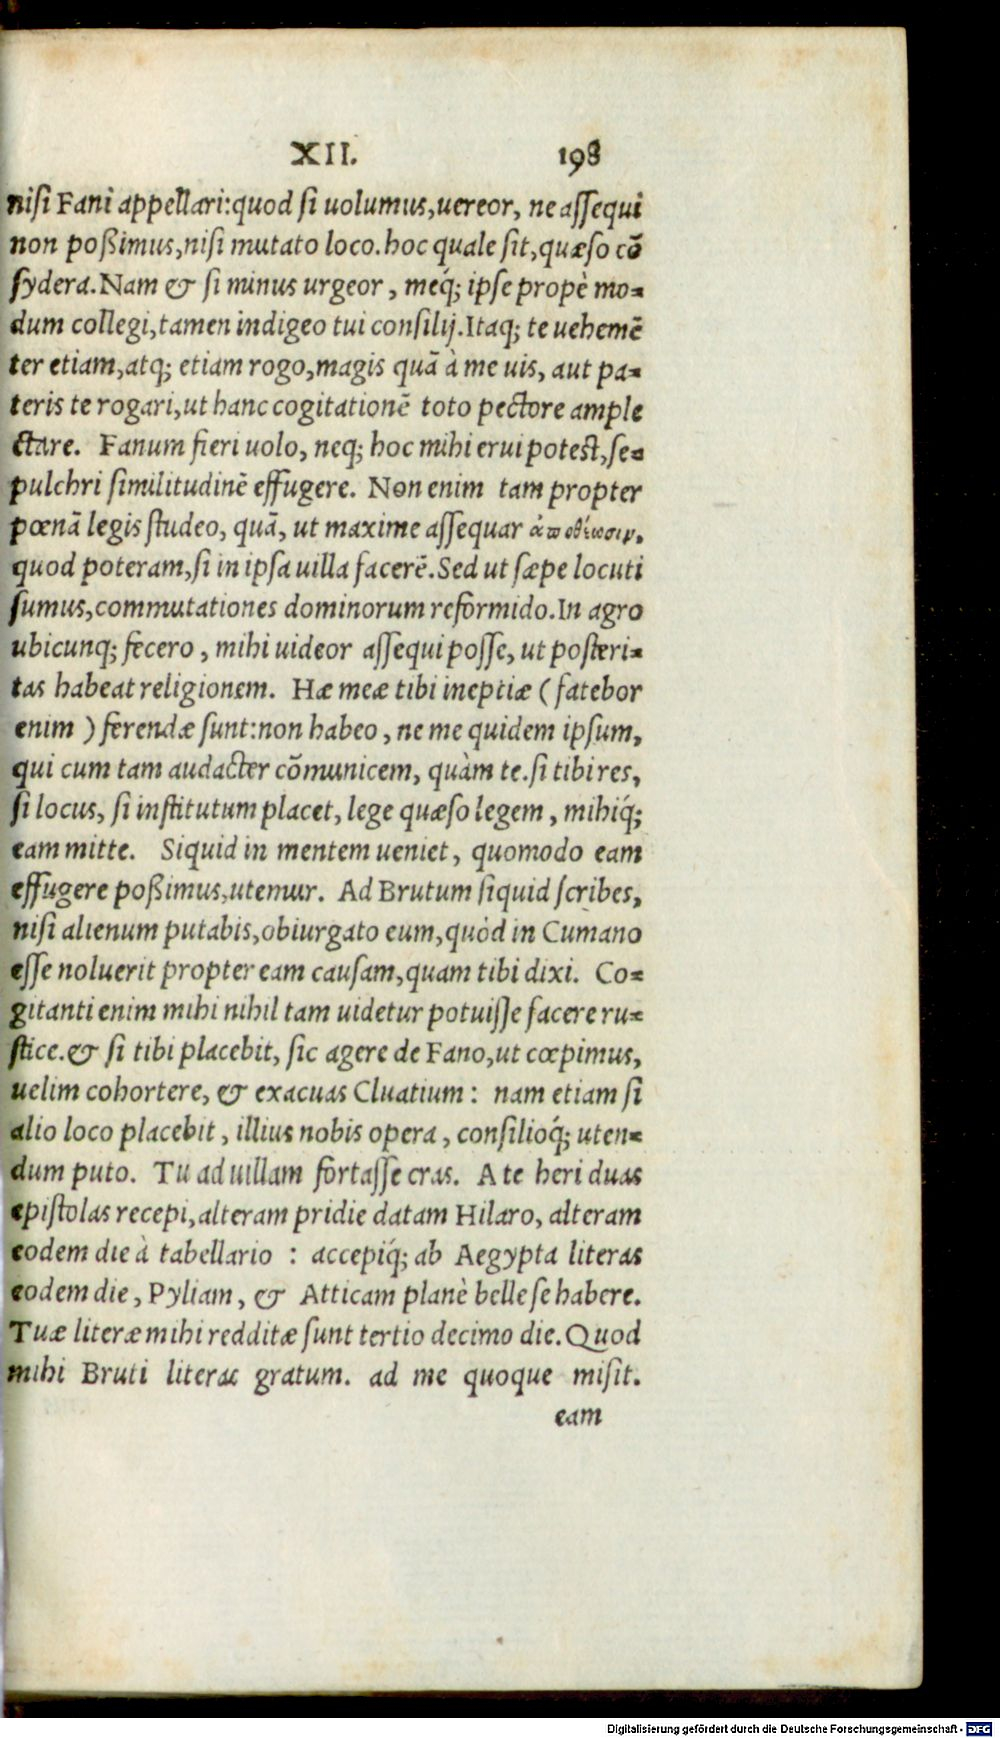 XII. 198
nisi Fani appellari:quod si uolumus,uereor, ne assequi
non poßimus,nisi mutato loco.hoc quale sit,quæso cõ
sydera.Nam & si minus urgeor, meq́; ipse propè mo-
dum collegi,tamen indigeo tui consilij.Itaq; te uehemẽ
ter etiam,atq; etiam rogo,magis quã à me uis, aut pa-
teris te rogari,ut hanc cogitationẽ toto pectore ample
ctare. Fanum fieri uolo, neq; hoc mihi erui potest,se-
pulchri similitudinẽ effugere. Non enim tam propter
pœnã legis studeo, quã, ut maxime assequar ἀποθέωσιν.
quod poteram,si in ipsa uilla facerẽ.Sed ut sæpe locuti
sumus,commutationes dominorum reformido.In agro
ubicunq; fecero, mihi uideor assequi posse, ut posteri-
tas habeat religionem. Hæ meæ tibi ineptiæ (fatebor
enim ) ferendæ sunt:non habeo, ne me quidem ipsum,
qui cum tam audacter cõmunicem, quàm te.si tibi res,
si locus, si institutum placet, lege quæso legem, mihiq́;
eam mitte. Siquid in mentem ueniet, quomodo eam
effugere poßimus,utemur. Ad Brutum siquid scribes,
nisi alienum putabis,obiurgato eum,quòd in Cumano
esse noluerit propter eam causam,quam tibi dixi. Co-
gitanti enim mihi nihil tam uidetur potuisse facere ru-
stice.& si tibi placebit, sic agere de Fano,ut cœpimus,
uelim cohortere, & exacuas Cluatium: nam etiam si
alio loco placebit, illius nobis opera, consilioq́; uten-
dum puto. Tu ad uillam fortasse cras. A te heri duas
epistolas recepi,alteram pridie datam Hilaro, alteram
eodem die à tabellario : accepiq́; ab Aegypta literas
eodem die, Pyliam, & Atticam planè belle se habere.
Tuæ literæ mihi redditæ sunt tertio decimo die.Quod
mihi Bruti literæ gratum. ad me quoque misit.
eam
Digitalisierung gefördert durch die Deutsche Forschungsgemeinschaft - DFG